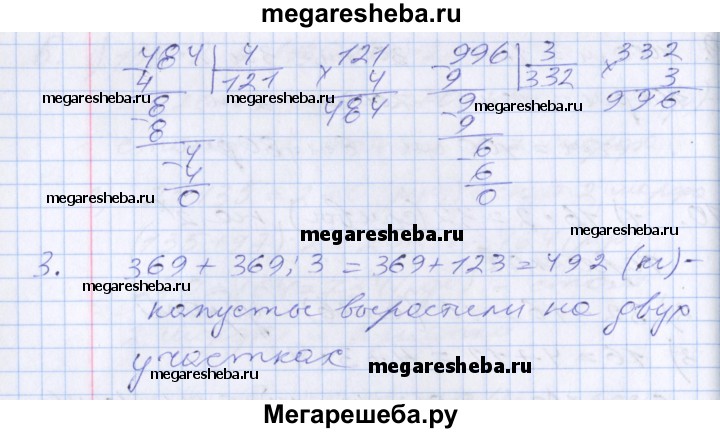 megaresheba.ru
484 | 4    121    996 | 3    332
4     121   × 4    9     332   × 3
megaresheba.ru megaresheba.ru
8    484    9    996
8    9
4    6
4    6
0    0
megaresheba.ru megaresheba.ru
megaresheba.ru
3. 369 + 369 : 3 = 369 + 123 = 492 (кг) -
megaresheba.ru
капусты выростили на двух
участках
megaresheba.ru megaresheba.ru
Мегарешеба.ру